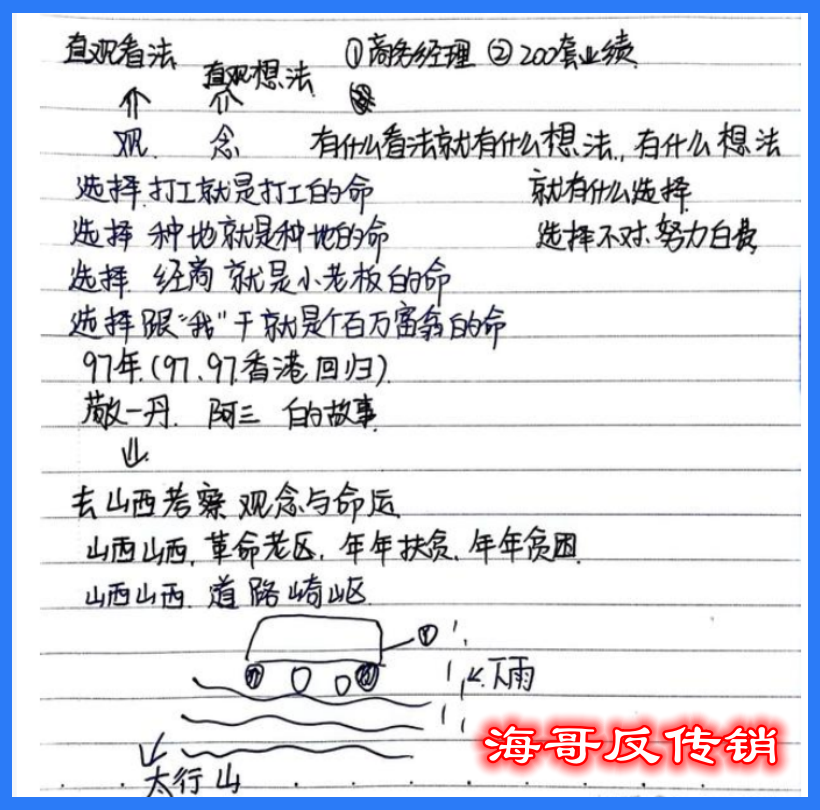 直观看法 ①商务经理 ②200套业绩
直观想法
观 念 有什么看法就有什么想法,有什么想法
选择打工就是打工的命 就有什么选择
选择 种地就是种地的命 选择不对.努力白费
选择 经商就是小老板的命
选择跟“我”干就是个百万富翁的命
97年.(97.97.香港回归)
敬一丹. 阿三 的故事
去山西考察观念与命运
山西山西,革命老区,年年扶贫,年年贫困
山西山西.道路崎岖
下雨
太行山
海哥反传销